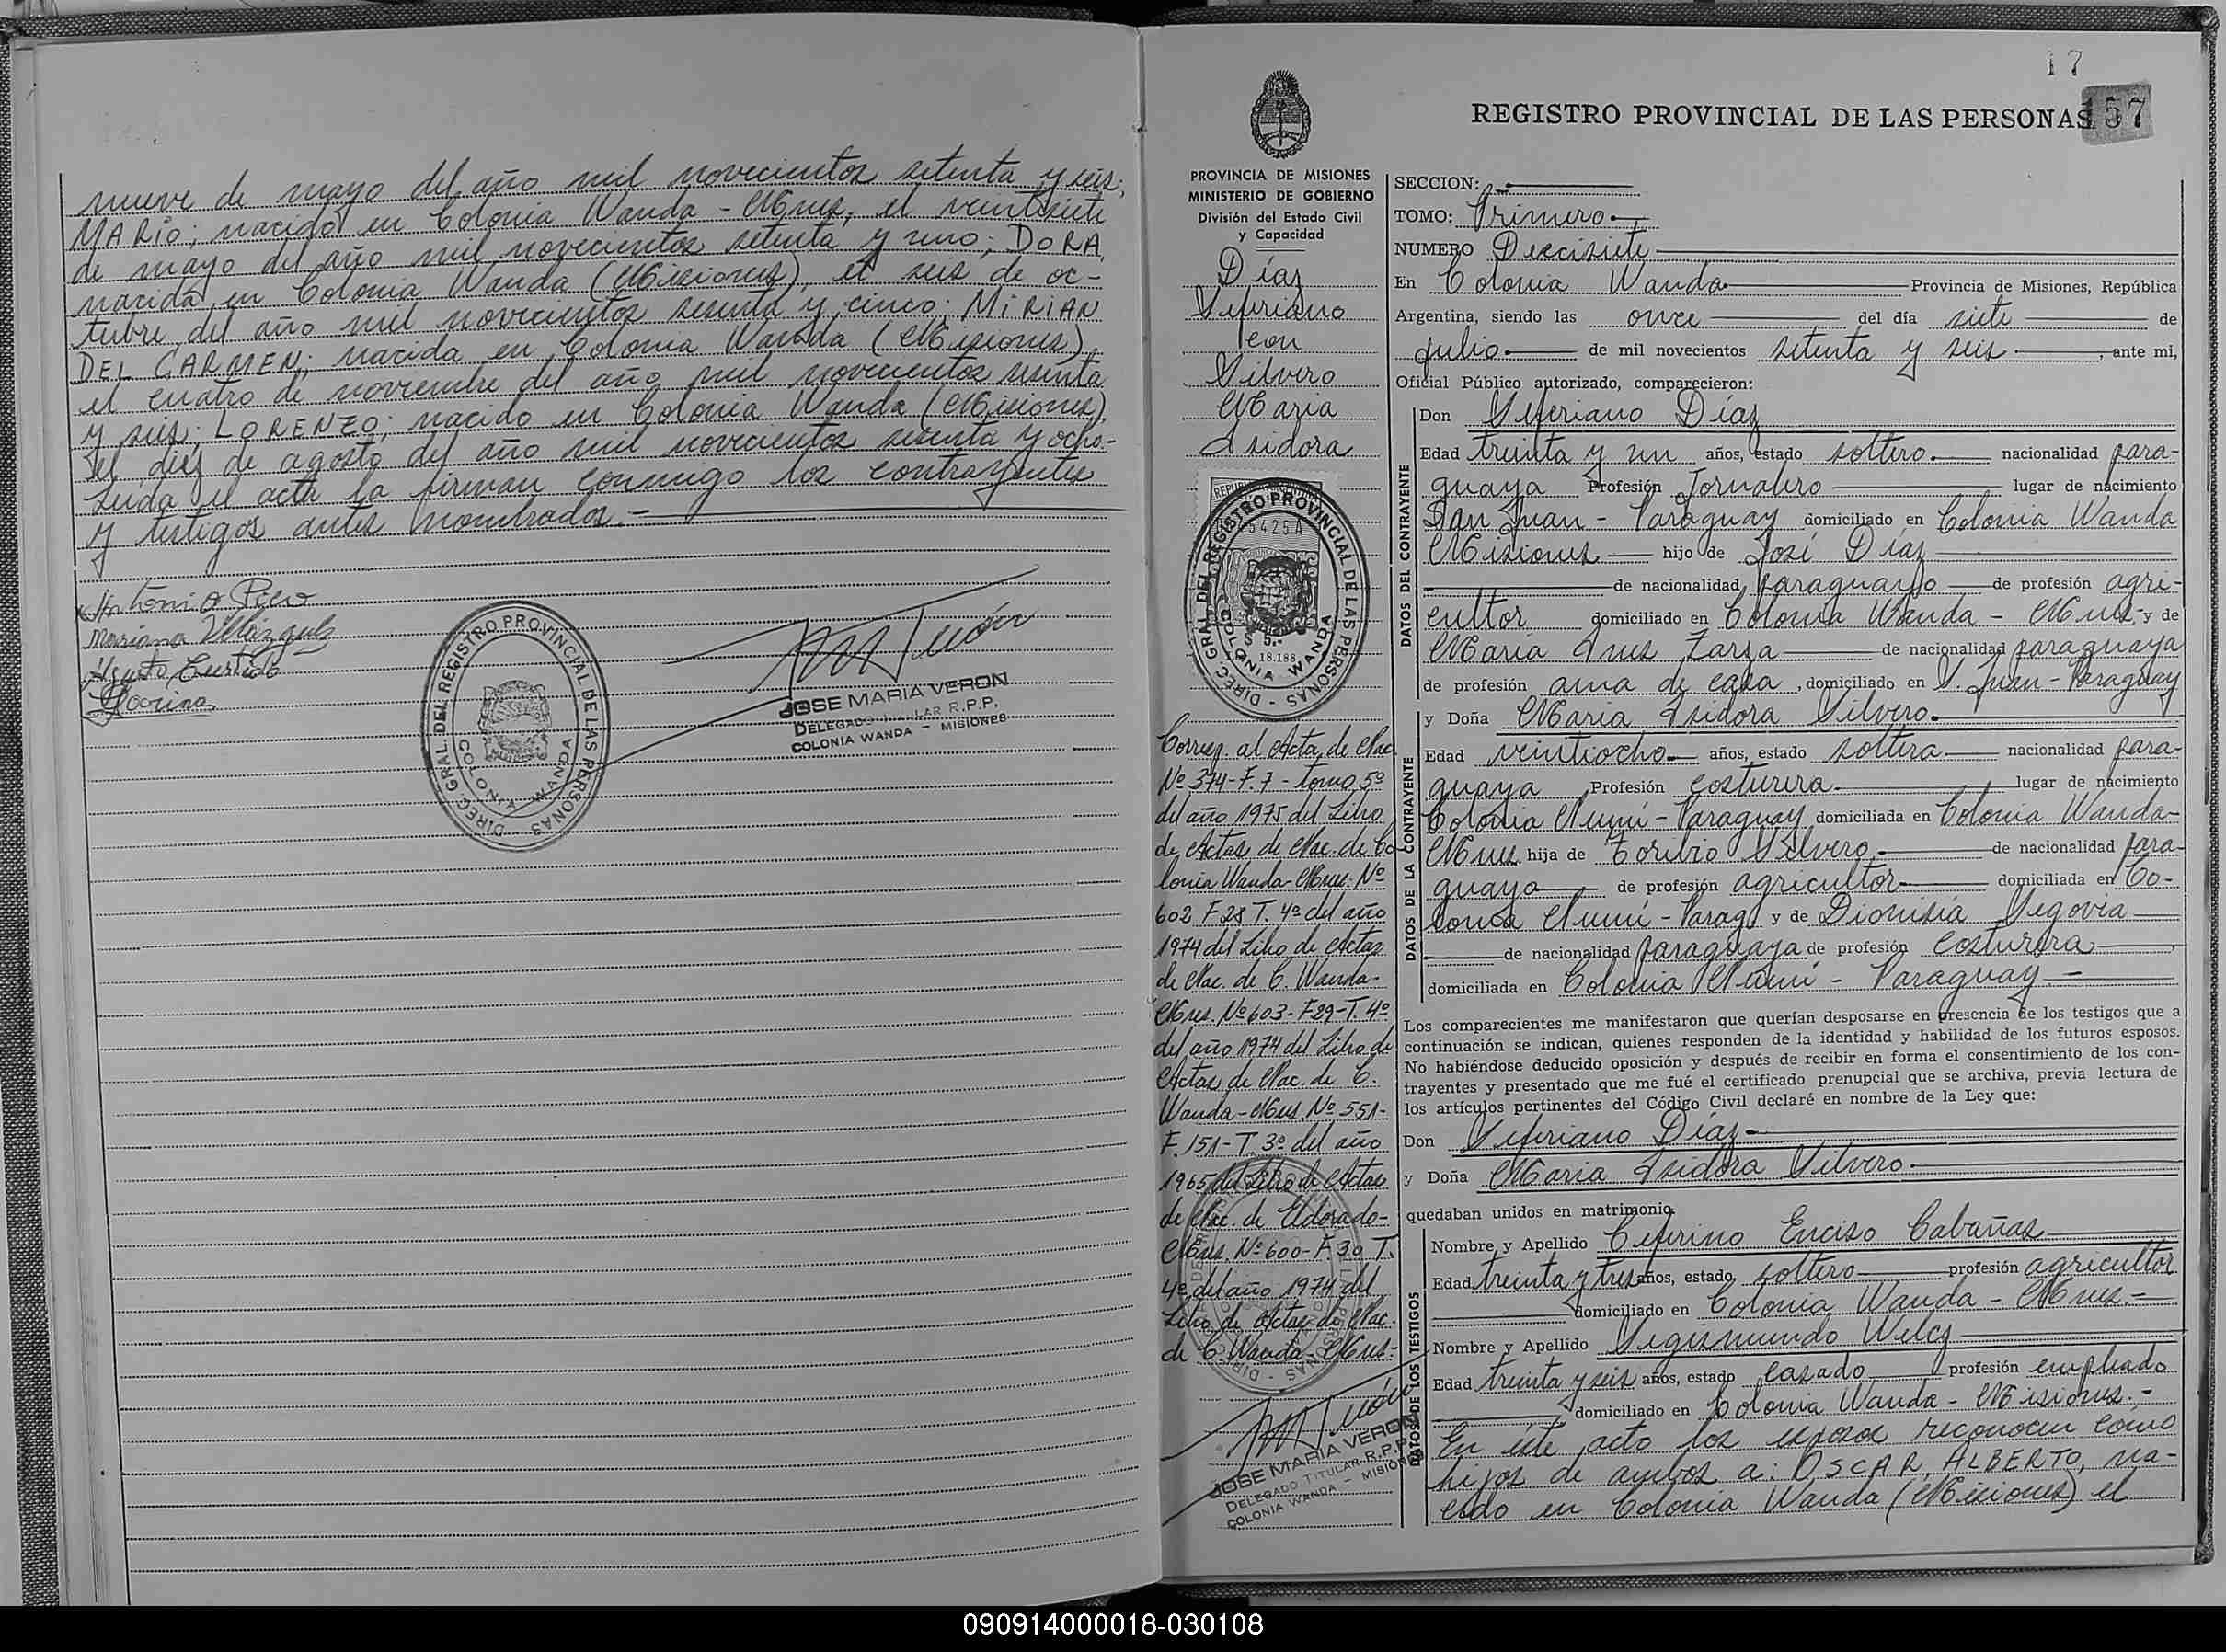 nueve de mayo del año mil novecientos setenta y seis;
MARIO; nacido en Colonia Wanda - Mnes, el veintisiete
de mayo del año mil novecientos setenta y uno; DORA
nacida en Colonia Wanda (Misiones), el seis de oc-
tubre del año mil novecientos sesenta y cinco; MIRIAN
DEL CARMEN; nacida en Colonia Wanda (Misiones),
el cuatro de noviembre del año mil novecientos sesenta
y seis; LORENZO; nacido en Colonia Wanda (Misiones),
el diez de agosto del año mil novecientos sesenta y ocho.-
Leída el acta la firman conmigo los contrayentes
y testigos antes nombrados.-
Antonio
Mariana
DIREC. GRAL. DEL REGISTRO PROVINCIAL DE LAS PERSONAS
COLONIA WANDA
JOSE MARIA VERON
DELEGADO TITULAR R.P.P.
COLONIA WANDA - MISIONES
17
REGISTRO PROVINCIAL DE LAS PERSONAS
157
PROVINCIA DE MISIONES
MINISTERIO DE GOBIERNO
División del Estado Civil
y Capacidad
Díaz
Seferiano
con
Silvero
Maria
Isidora
DIREC. GRAL. DEL REGISTRO PROVINCIAL DE LAS PERSONAS
COLONIA WANDA
5425A
18.188
Corresp. al Acta de Nac.
Nº 374-F.7-Tomo 5º
del año 1975 del Libro
de Actas de Nac. de Co-
lonia Wanda-Mnes. Nº
602 F28 T. 4º del año
1974 del Libro de Actas
de Nac. de C. Wanda-
Mnes. Nº 603-F29-T.4º
del año 1974 del Libro de
Actas de Nac. de C.
Wanda-Mnes Nº 551-
F.151-T.3º del año
1965 del Libro de Actas
de Nac. de Eldorado-
Mnes. Nº 600-F30 T.
4º del año 1974 del
Libro de Actas de Nac.
de C. Wanda-Mnes.-
JOSE MARIA VERON
DELEGADO TITULAR R.P.P.
COLONIA WANDA - MISIONES
SECCION:
TOMO: Primero
NUMERO Diecisiete
En Colonia Wanda Provincia de Misiones, República
Argentina, siendo las once del día siete de
julio de mil novecientos setenta y seis, ante mi,
Oficial Público autorizado, comparecieron:
DATOS DEL CONTRAYENTE
Don Seferiano Díaz
Edad treinta y un años, estado soltero nacionalidad para-
guaya Profesión Jornalero lugar de nacimiento
San Juan - Paraguay domiciliado en Colonia Wanda
Misiones hijo de José Díaz
de nacionalidad paraguayo de profesión agri-
cultor domiciliado en Colonia Wanda - Mnes y de
María Ines Zarza de nacionalidad paraguaya
de profesión ama de casa, domiciliado en S. Juan - Paraguay
DATOS DE LA CONTRAYENTE
y Doña Maria Isidora Silvero
Edad veintiocho años, estado soltera nacionalidad para-
guaya Profesión costurera lugar de nacimiento
Colonia Ñumí - Paraguay domiciliada en Colonia Wanda-
Mnes hija de Toribio Silvero de nacionalidad para-
guaya de profesión agricultor domiciliada en Co-
lonia Ñumí - Parag. y de Dionisia Segovia
de nacionalidad paraguaya de profesión costurera
domiciliada en Colonia Ñumí - Paraguay -
Los comparecientes me manifestaron que querían desposarse en presencia de los testigos que a
continuación se indican, quienes responden de la identidad y habilidad de los futuros esposos.
No habiéndose deducido oposición y después de recibir en forma el consentimiento de los con-
trayentes y presentado que me fué el certificado prenupcial que se archiva, previa lectura de
los artículos pertinentes del Código Civil declaré en nombre de la Ley que:
Don Seferiano Díaz
y Doña Maria Isidora Silvero
quedaban unidos en matrimonio.
DATOS DE LOS TESTIGOS
Nombre y Apellido Ceferino Enciso Cabañas
Edad treinta y tres años, estado soltero profesión agricultor
domiciliado en Colonia Wanda - Mnes.-
Nombre y Apellido Segismundo Welcz
Edad treinta y seis años, estado casado profesión empleado
domiciliado en Colonia Wanda - Misiones.-
En este acto los esposos reconocen como
hijos de ambos a: OSCAR ALBERTO, na-
cido en Colonia Wanda (Misiones) el
090914000018-030108